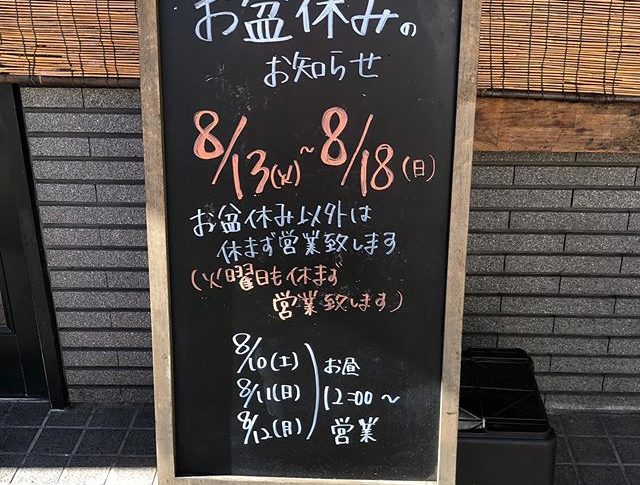 お盆休みの
お知らせ
8/13(火)~8/18(日)
お盆休み以外は
休まず営業致します
(火曜日も休まず
営業致します)
8/10(土)
8/11(日)
8/12(月)
お昼
12:00~
営業